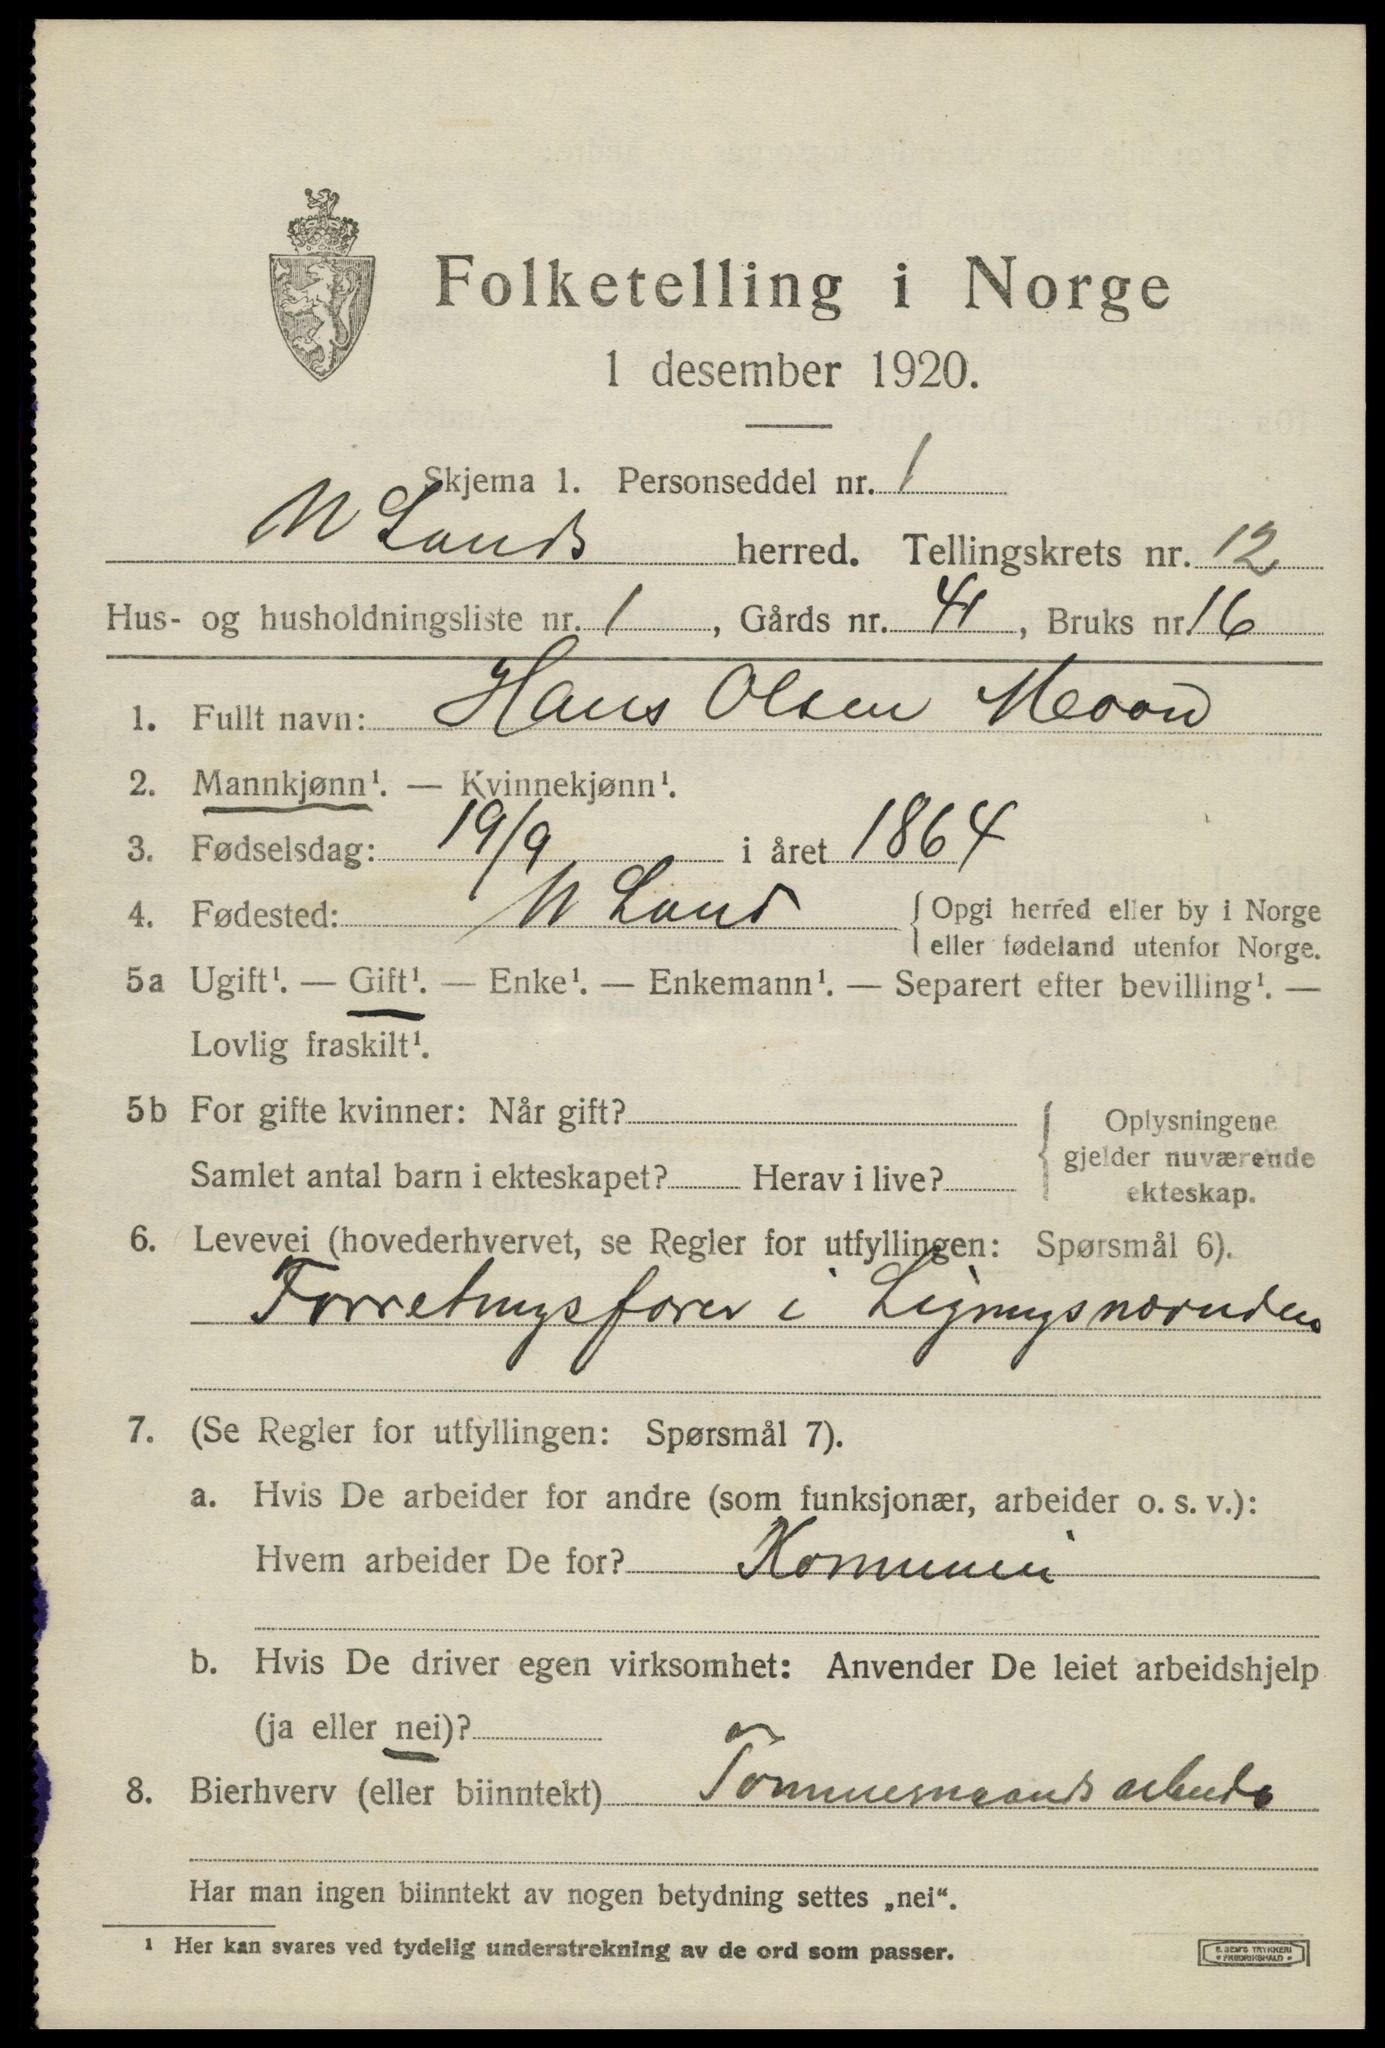 Folketelling i Norge
1 desember 1920.
Skjema 1. Personseddel nr. 1
N Lands herred. Tellingskrets nr. 12
Hus- og husholdningsliste nr. 1, Gårds nr. 41, Bruks nr. 16
1. Fullt navn: Hans Olsen
2. Mannkjønn¹. — Kvinnekjønn¹.
3. Fødselsdag: 19/9 i året 1864
4. Fødested: N Land { Opgi herred eller by i Norge
eller fødeland utenfor Norge.
5a Ugift¹. — Gift¹. — Enke¹. — Enkemann¹. — Separert efter bevilling¹. —
Lovlig fraskilt¹.
5b For gifte kvinner: Når gift? { Oplysningene
gjelder nuværende
Samlet antal barn i ekteskapet? Herav i live? ekteskap.
6. Levevei (hovederhvervet, se Regler for utfyllingen: Spørsmål 6).
Forretningsfører i Ligningsnævnden
7. (Se Regler for utfyllingen: Spørsmål 7).
a. Hvis De arbeider for andre (som funksjonær, arbeider o. s. v.):
Hvem arbeider De for? Kommunen
b. Hvis De driver egen virksomhet: Anvender De leiet arbeidshjelp
(ja eller nei)?
8. Bierhverv (eller biinntekt) Tømmermands arbeide
Har man ingen biinntekt av nogen betydning settes „nei“.
¹ Her kan svares ved tydelig understrekning av de ord som passer.
E. SEM'S TRYKKERI
FREDRIKSHALD